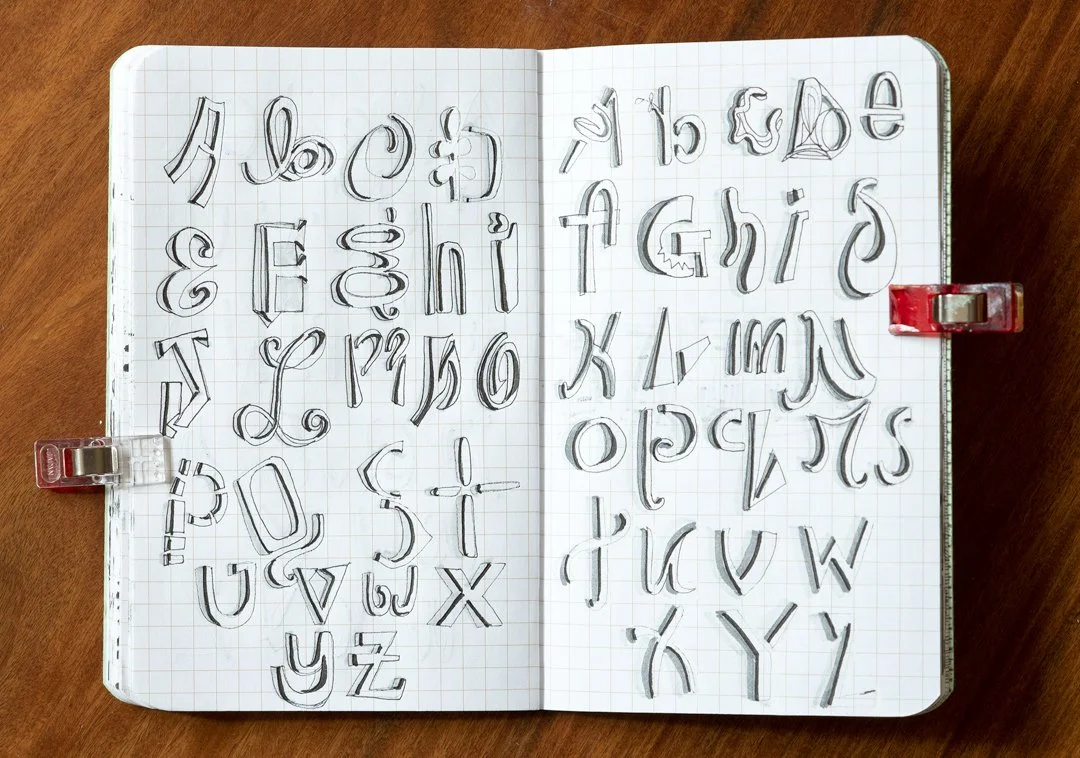 A b C D
E F g h i
J L m n O
P Q S t
U V W X
y Z
A b C D e
f G h i J
K L m N
O p q r s
t u v w
X Y Z